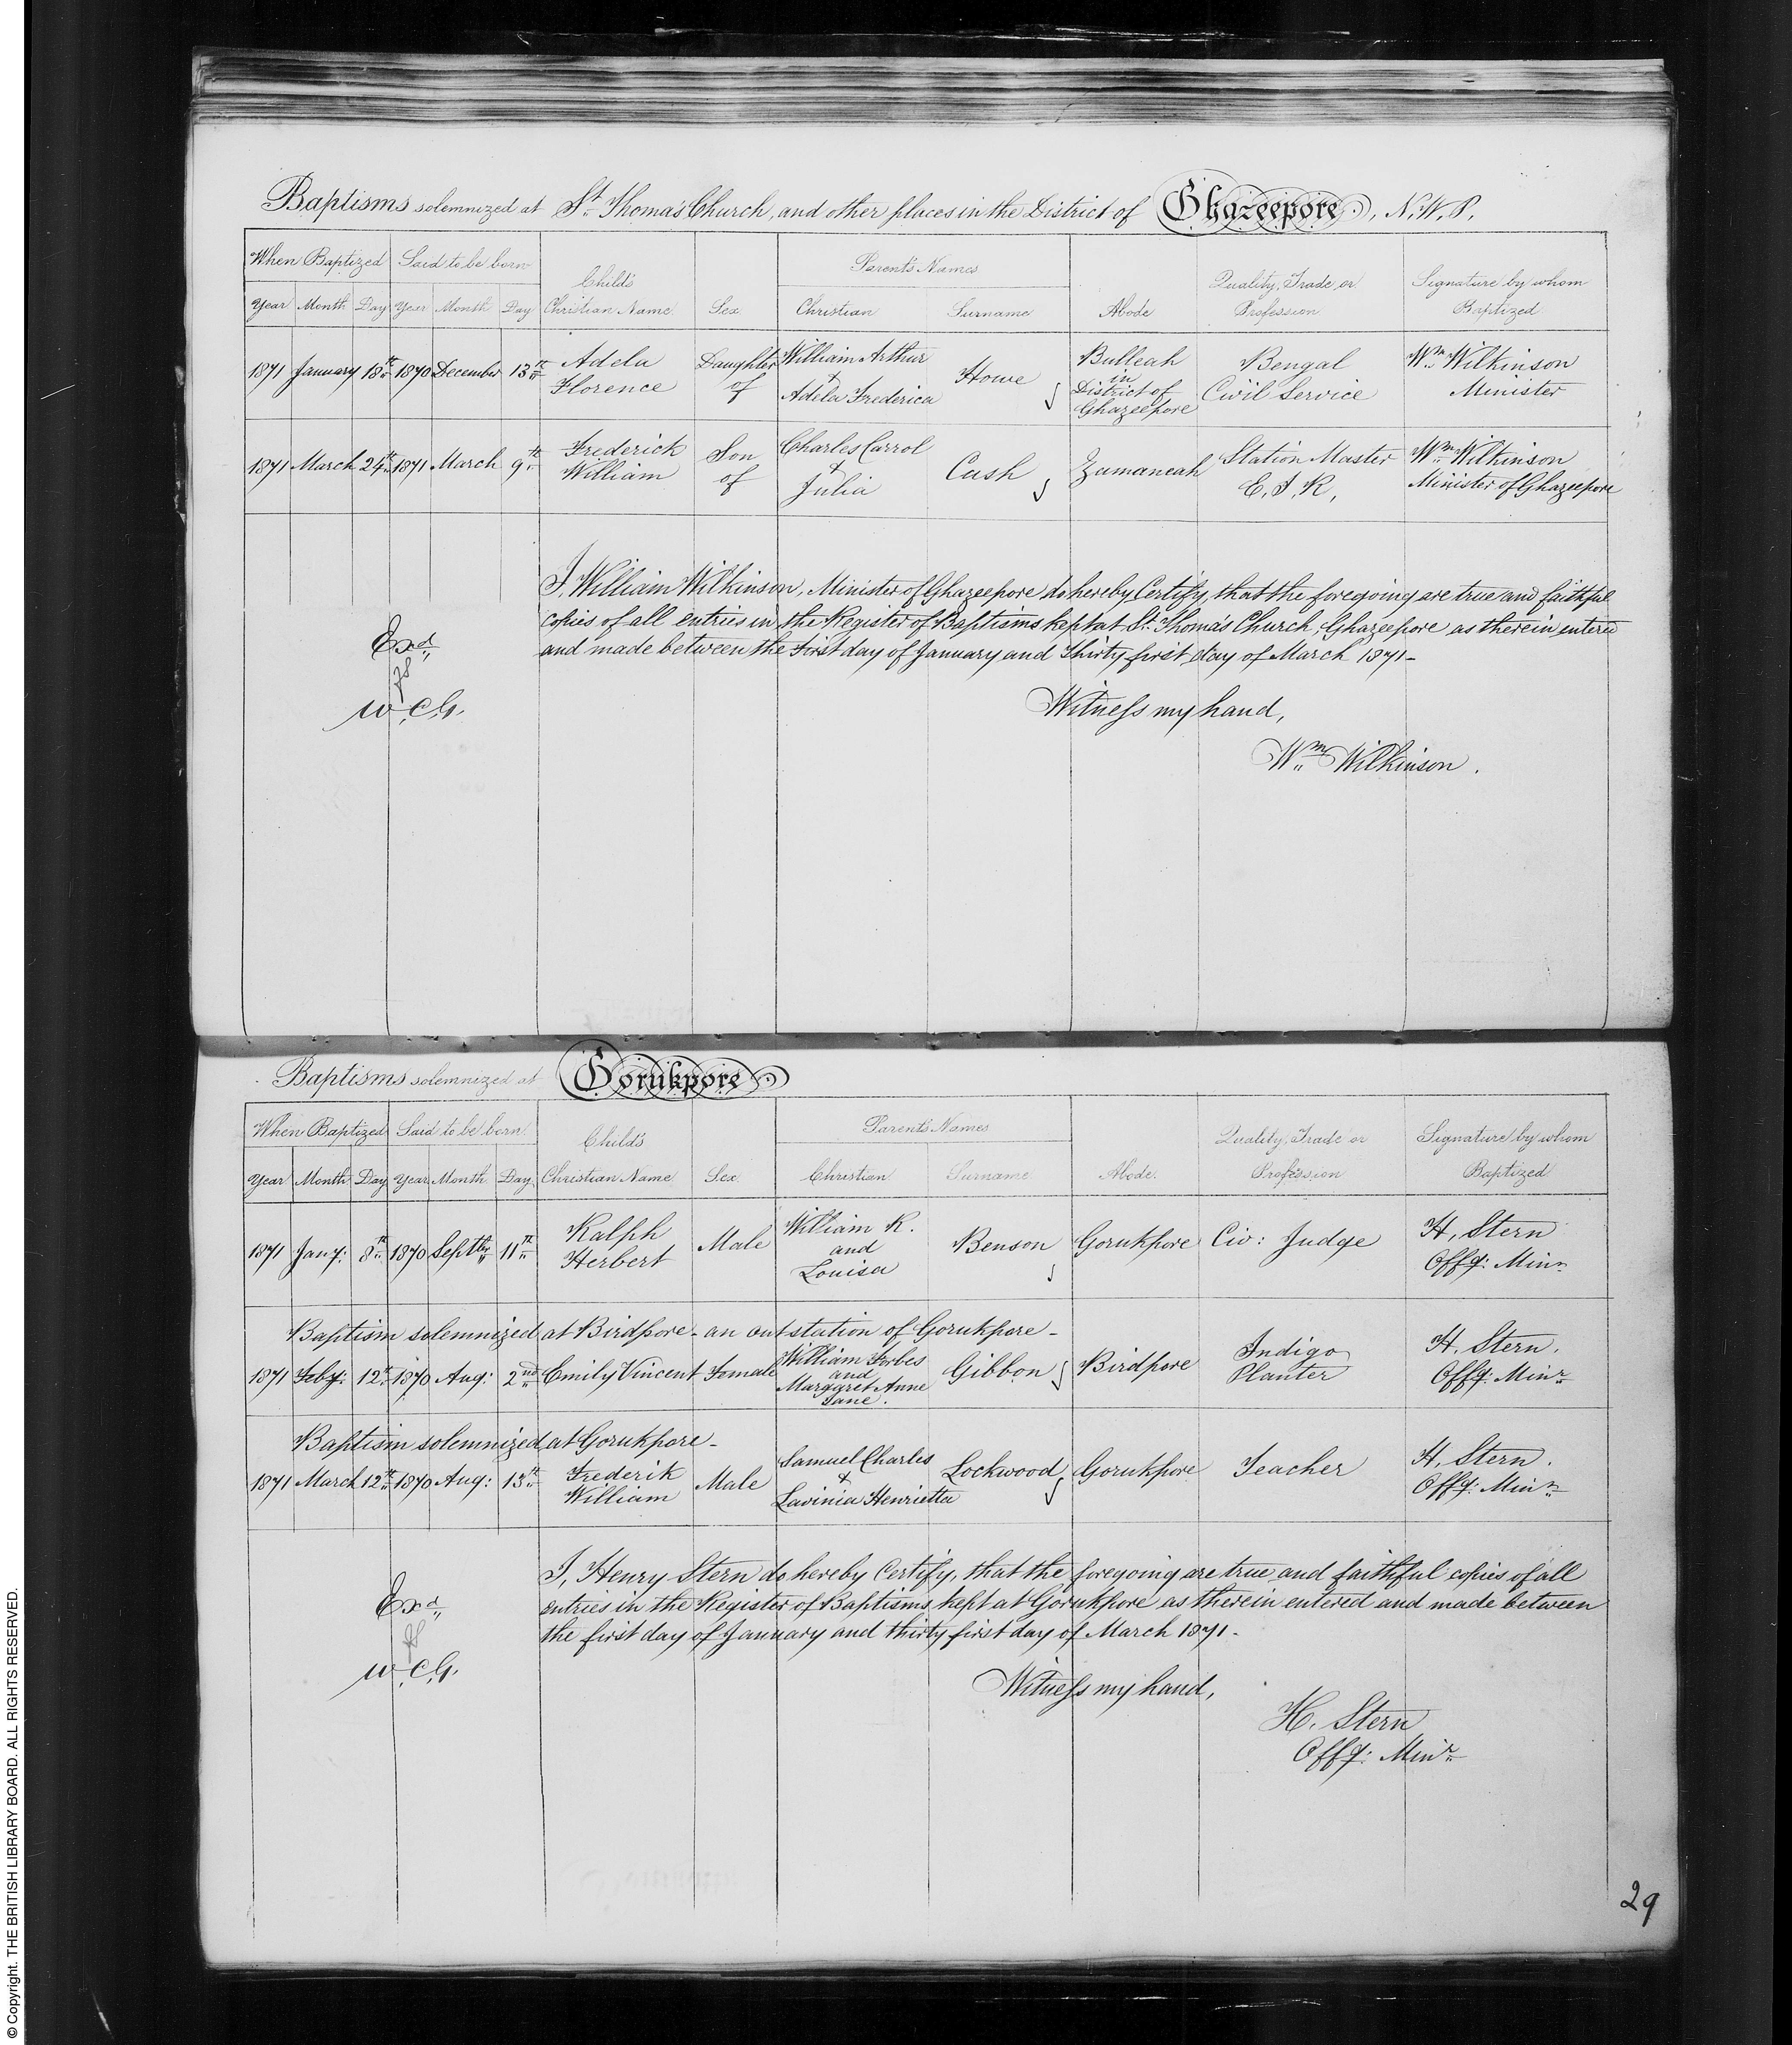 Baptisms solemnized at St Thomas's Church, and other places in the District of Ghazeepore, N.W.P.
When Baptized Said to be born Child's Christian Name Sex Parent's Names Abode Quality, Trade or Profession Signature by whom Baptized
Year Month Day Year Month Day Christian Surname
1871 January 18th 1870 December 13th Adela Florence Daughter of William Arthur & Adela Frederica Howe Bulleah in District of Ghazeepore Bengal Civil Service Wm Wilkinson Minister
1871 March 24th 1871 March 9th Frederick William Son of Charles Carrol & Julia Cash Zumaneah Station Master E.I.R. Wm Wilkinson Minister of Ghazeepore
I, William Wilkinson, Minister of Ghazeepore do hereby Certify, that the foregoing are true and faithful
copies of all entries in the Register of Baptisms kept at St. Thomas's Church, Ghazeepore as therein entered
and made between the First day of January and Thirty first day of March 1871-
Exd
W.C.G.
Witness my hand,
Wm Wilkinson.
Baptisms solemnized at Gorukpore
When Baptized Said to be born Child's Christian Name Sex Parent's Names Abode Quality, Trade or Profession Signature by whom Baptized
Year Month Day Year Month Day Christian Surname
1871 Jany: 8th 1870 Septbr 11th Ralph Herbert Male William R. and Louisa Benson Gorukpore Civ: Judge H. Stern Offg: Minr
Baptism solemnized at Birdpore - an outstation of Gorukpore -
1871 Feby: 12th 1870 Aug: 2nd Emily Vincent Female William Forbes and Margaret Anne Jane. Gibbon Birdpore Indigo Planter H. Stern. Offg: Minr
Baptism solemnized at Gorukpore -
1871 March 12th 1870 Aug: 13th Frederik William Male Samuel Charles & Lavinia Henrietta Lockwood Gorukpore Teacher H. Stern. Offg: Minr
I, Henry Stern do hereby Certify, that the foregoing are true and faithful copies of all
entries in the Register of Baptisms kept at Gorukpore as therein entered and made between
the first day of January and thirty first day of March 1871-
Exd
W.C.G.
Witness my hand,
H. Stern
Offg: Minr
29
© Copyright. THE BRITISH LIBRARY BOARD. ALL RIGHTS RESERVED.